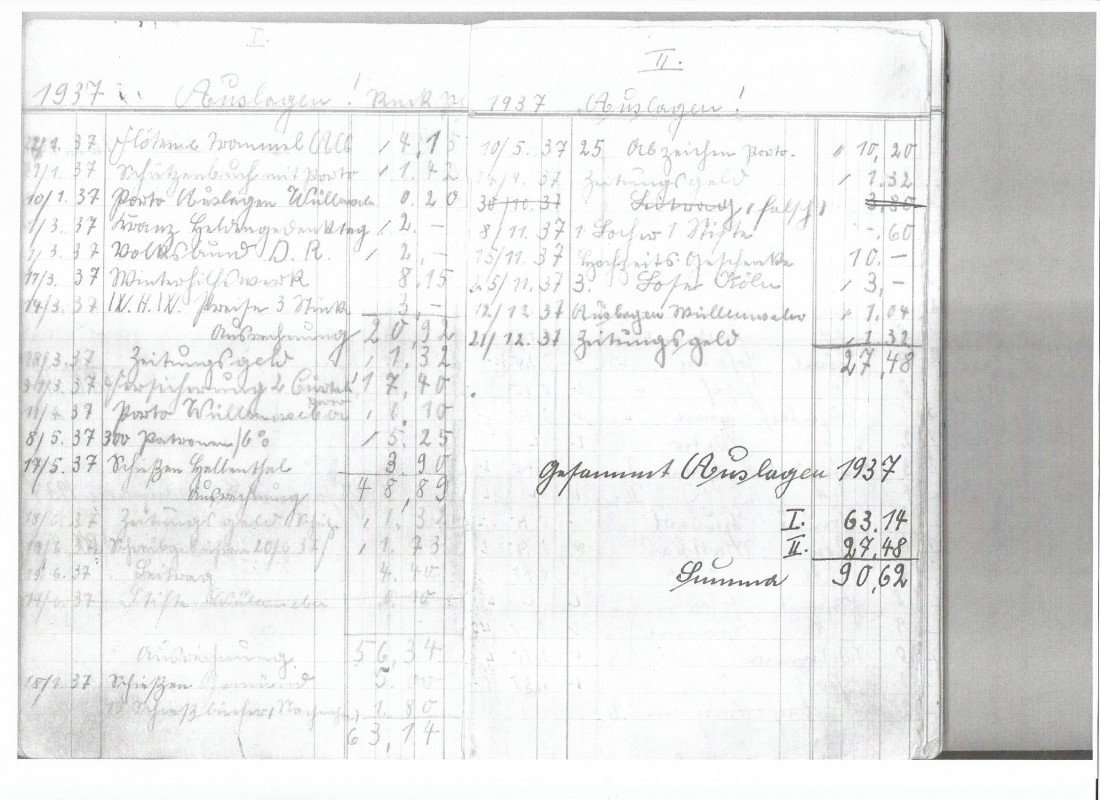 I.
1937 Auslagen! Rmk
37 Flöten & Trommel 4.15
1. 37 Schützenbuch mit Porto 1.42
10/1. 37 Porto Auslagen Wüllenweber 0.20
1/3. 37 Kranz Heldengedenktag 2.–
/3. 37 Volksbund D. R. 2.–
17/3. 37 Winterhilfswerk 8.15
14/3. 37 Preise 3 Stück 3,–
Ausrechnung 20,92
18/3. 37 Zeitungsgeld 1.32
/3. 37 Versicherung 17,40
11/4. 37 Porto Wüllenweber 0.10
8/5. 37 300 Patronen 5.25
17/5. 37 Schießen Hellenthal 3.90
Ausrechnung 48,89
37 Zeitungsgeld 1.32
19/6. 37 20/6 37 1.73
19 6. 37 Beitrag 4.40
37 Stifte Wüllenweber
Ausrechnung 56,34
37 Schießen Gemünd 5.00
Schießbücher 1.80
63,14
II.
1937 Auslagen!
10/5. 37 25 Abzeichen Porto. 10,20
37 Zeitungsgeld 1.32
30/10. 37 Beitrag, falsch, 3,80
8/11. 37 1 Locher 1 Stifte –.60
15/11. 37 Hochzeits Geschenke 10.–
25/11. 37 3. Lose Köln 3,–
12/12 37 Auslagen Wüllenweber 1.04
21/12. 37 Zeitungsgeld 1.32
27,48
Gesammt Auslagen 1937
I. 63.14
II. 27,48
Summa 90,62